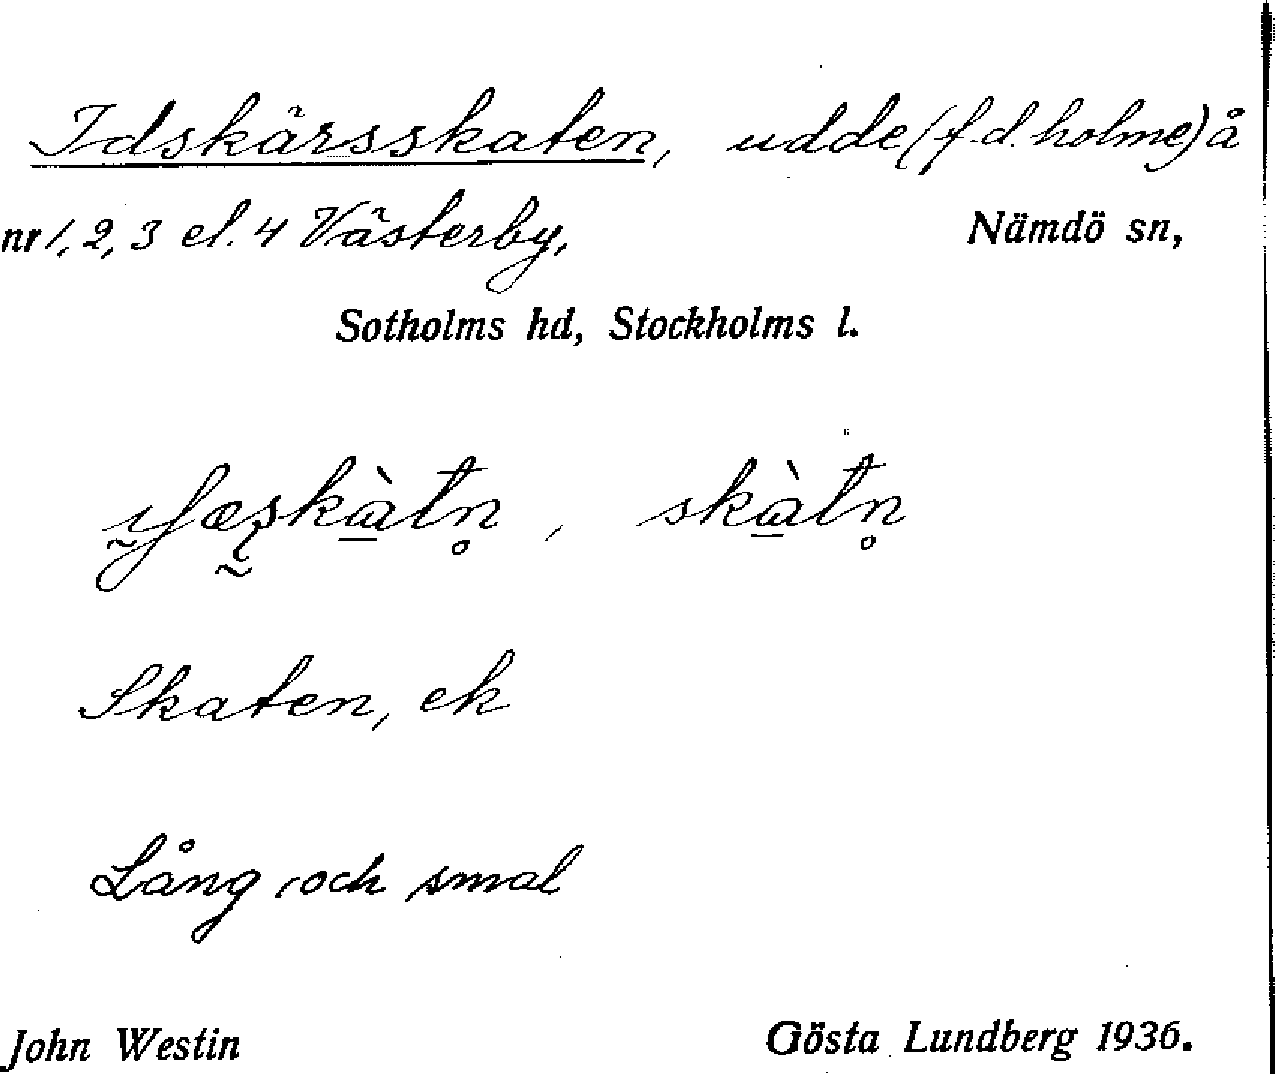 Idskärsskaten, udde (f.d. holme) å
nr 1, 2, 3 el. 4 Västerby, Nämdö sn,
Sotholms hd, Stockholms l.
skàtn̥
Skaten, ek
Lång och smal
John Westin Gösta Lundberg 1936.